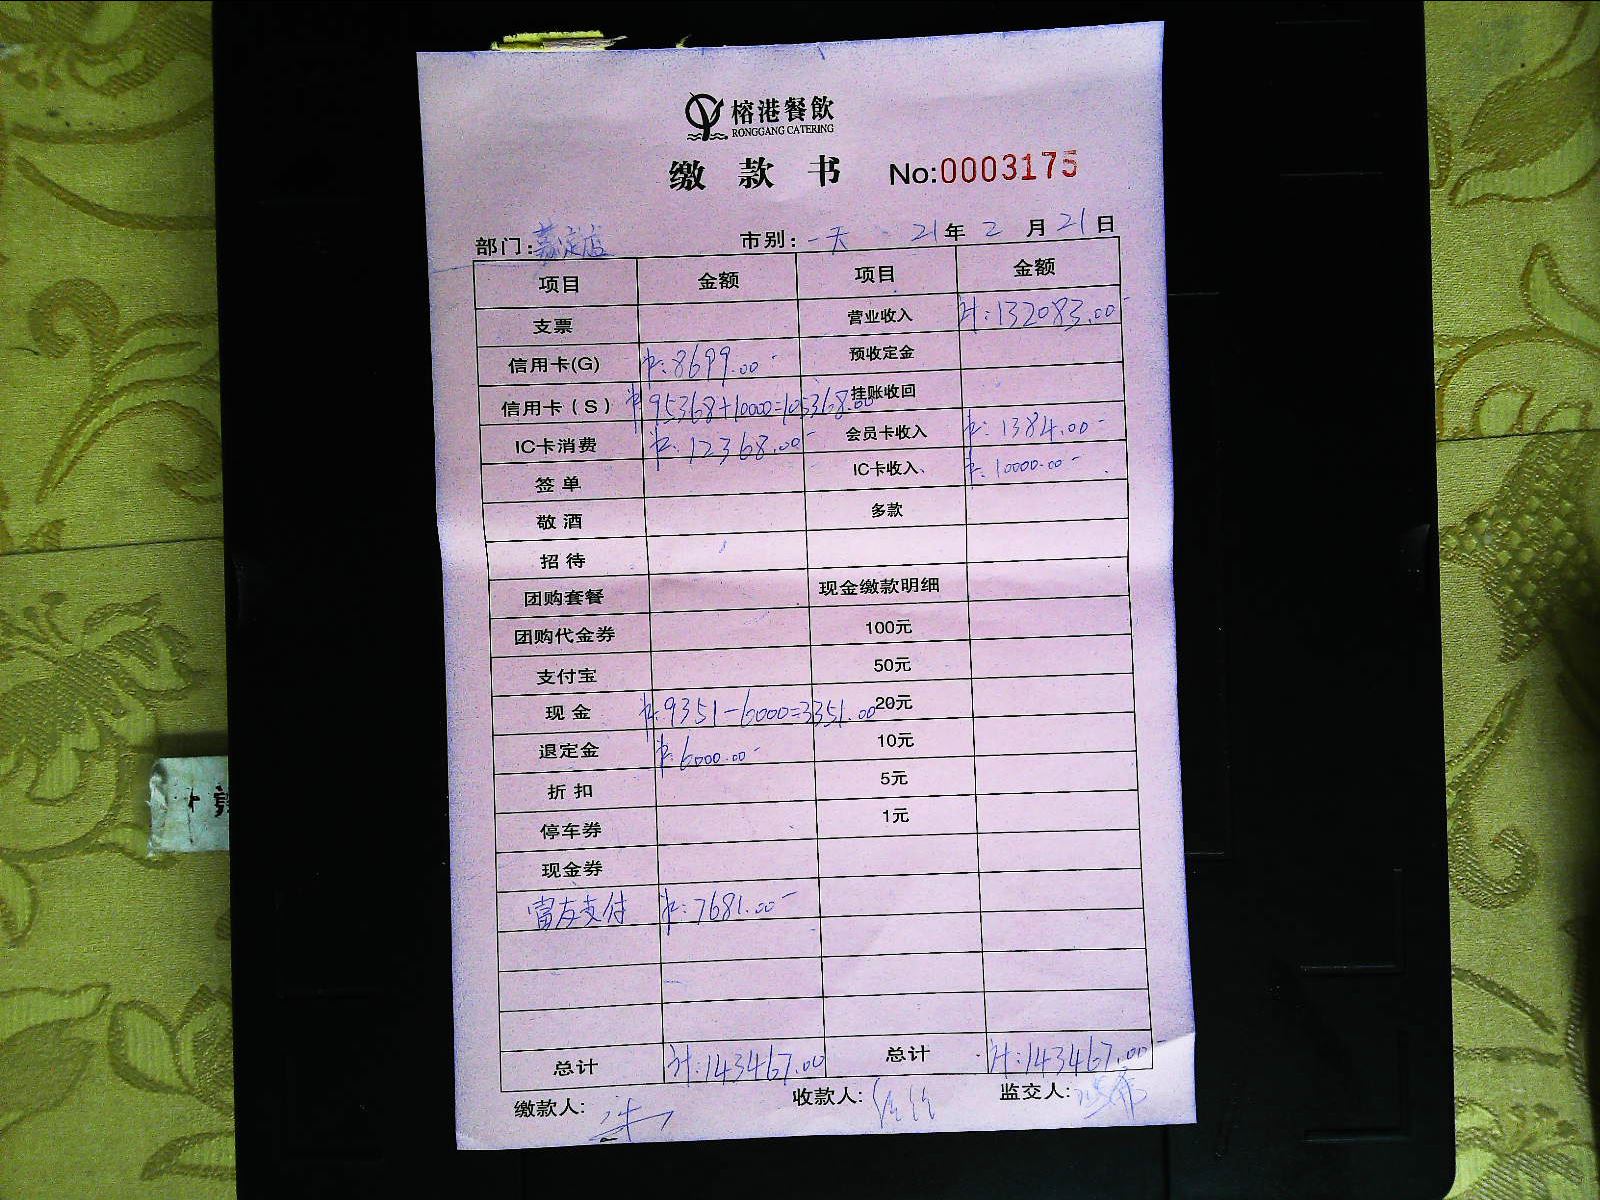 榕港餐飲
RONGGANG CATERING
缴 款 书 No:0003175
部门: 市别: 一天 21年 2 月 21日
项目 金额 项目 金额
支票 营业收入 计:132083.00
信用卡(G) 卡:8699.00 预收定金
信用卡(S) 卡 95368+10000=105368.00 挂账收回
IC卡消费 卡:12368.00 会员卡收入 卡:1384.00
签单 IC卡收入 卡:10000.00
敬酒 多款
招待
团购套餐 现金缴款明细
团购代金券 100元
支付宝 50元
现金 卡:9351-6000=3351.00 20元
退定金 卡:6000.00 10元
折扣 5元
停车券 1元
现金券
富友支付 卡:7681.00
总计 计:143467.00 总计 计:143467.00
缴款人: 收款人: 监交人: